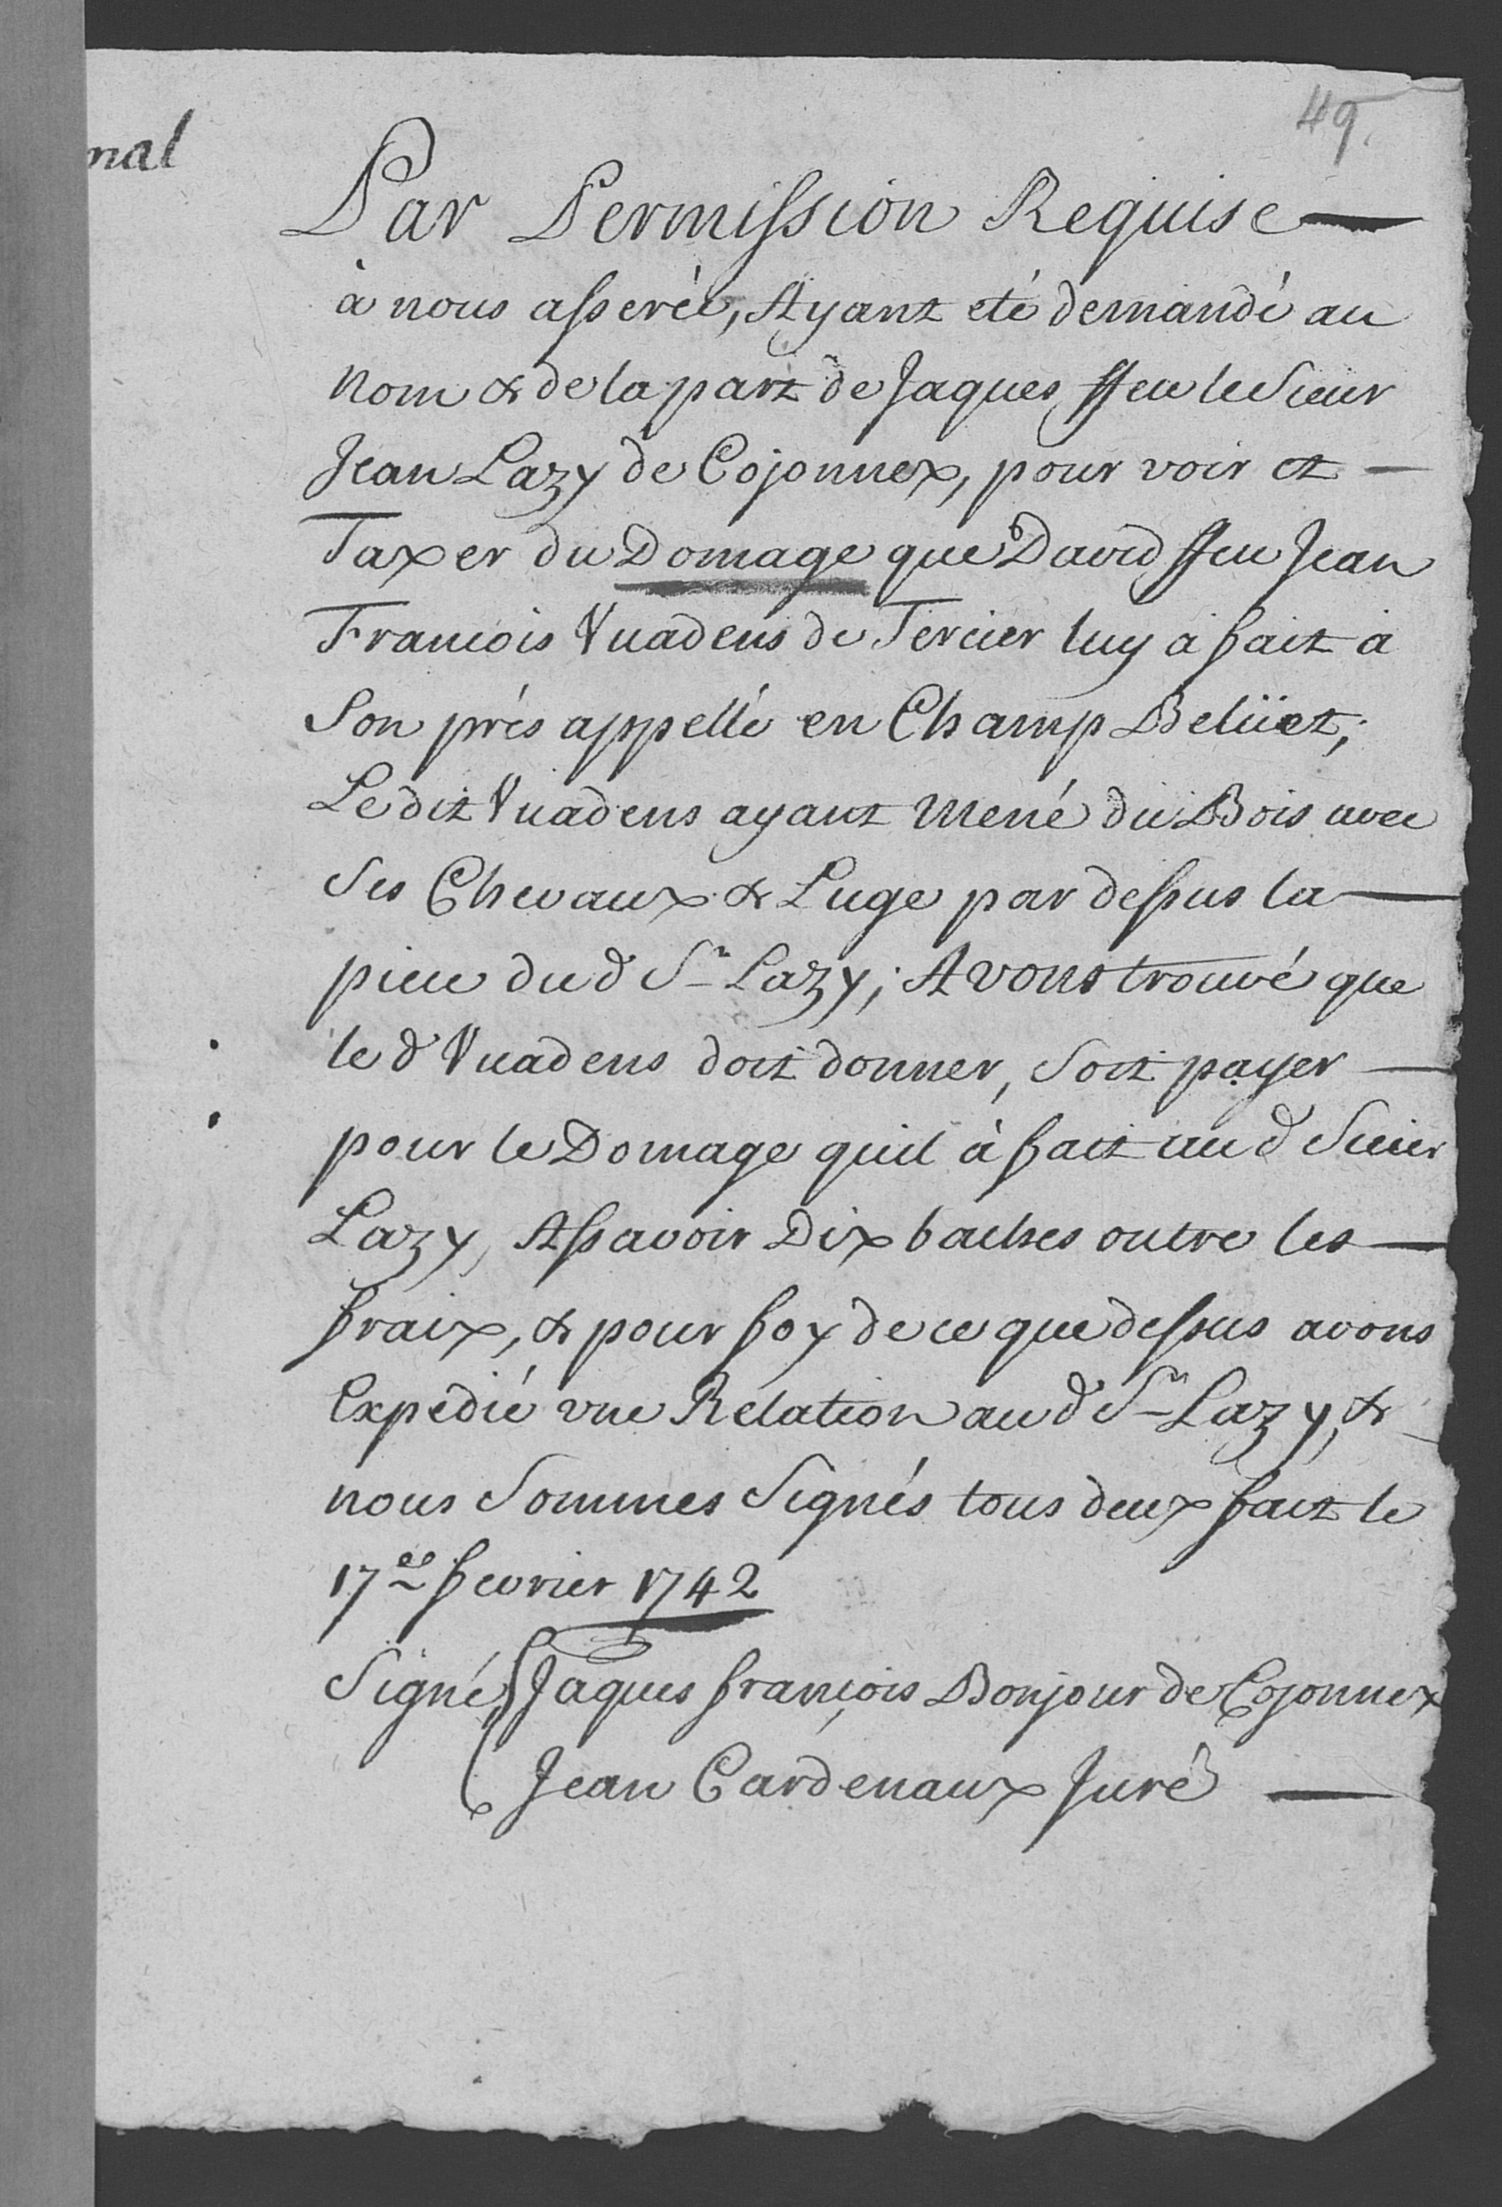 49.
nal
Par Permission Requise
à nous asserée, Ayant eté demandé au
Nom & de la part de Jaques ffeu le Sieur
Jean Lazy de Cojonnex, pour voir et
Taxer du Domage que David ffeu Jean
Francois Vuadens de Tercier luy à fait à
Son prés appellé en Champ Belüet;
Le dit Vuadens ayant mené du Bois avec
Ses Chevaux & Luge par dessus la
piece dud Sr Lazy; Avons trouvé que
le d Vuadens doit donner, Soit payer
pour le Domage quil à fait au d Sieur
Lazy, Assavoir Dix batses outre les
fraix, & pour foy de ce que dessus avons
Expedié vne Relation au d Sr Lazy, &
nous Sommes Signés tous deux fait le
17e fevrier 1742
Signé Jaques françois Bonjour de Cojonnex
Jean Cardenaux Juré